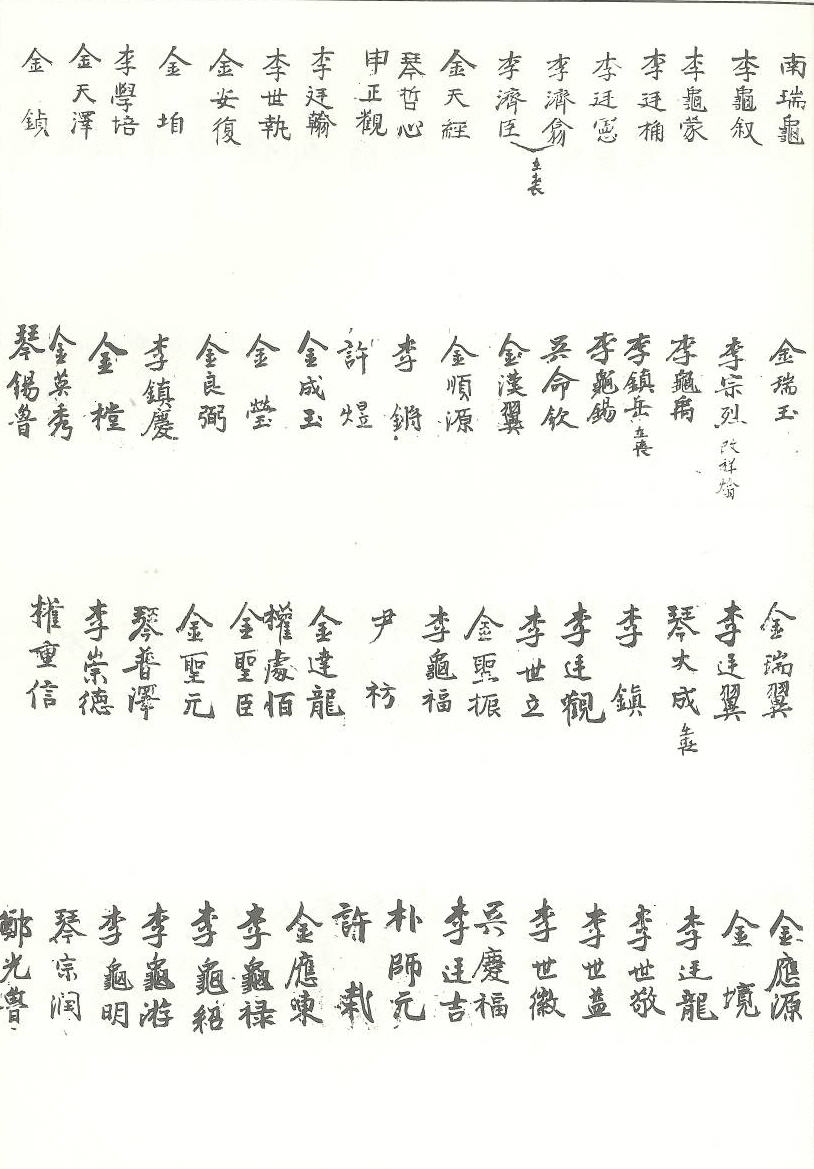 南瑞龜
李龜叙
李龜蒙
李廷桷
李廷憲
李濟翕
李濟臣
在喪
金天經
琴哲心
申正觀
李廷翰
李世執
金安復
金垍
李學培
金天澤
金鍞
金瑞玉
李宗烈 改祥
李龜禹
李鎮岳 在喪
李龜錫
吳命欽
金漢翼
金順源
李鏘
許煜
金成玉
金瑩
金良弼
李鎮慶
金樘
金英秀
琴錫魯
金瑞翼
李廷翼
琴大成 在喪
李鎮
李世觀
李世立
金聖振
李龜福
尹枋
金達龍
權處恒
金聖臣
金聖元
琴普澤
李崇德
權重信
金應源
金境
李廷龍
李世敬
李世益
李世徽
吳慶福
李廷吉
朴師元
許
金應東
李龜祿
李龜紹
李龜游
李龜明
琴宗潤
鄭光魯